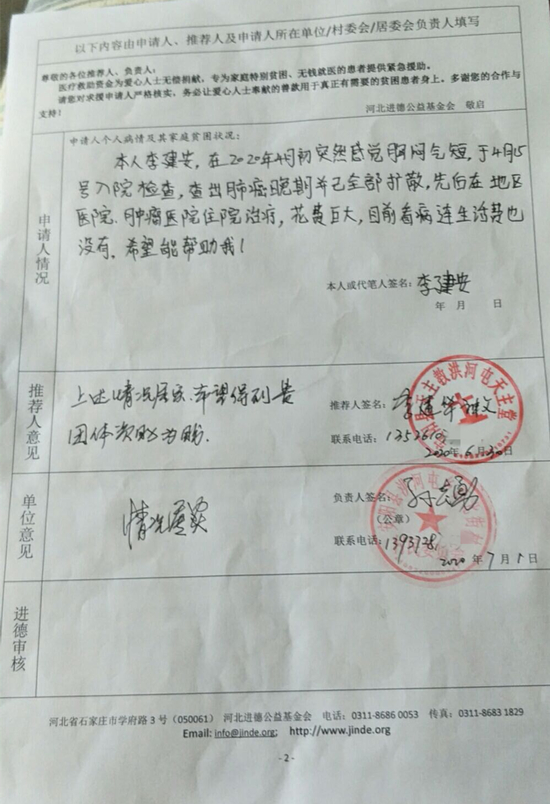 以下内容由申请人、推荐人及申请人所在单位/村委会/居委会负责人填写
尊敬的各位推荐人、负责人：
医疗救助资金为爱心人士无偿捐献，专为家庭特别贫困、无钱就医的患者提供紧急援助。
请您对求援申请人严格核实，务必让爱心人士奉献的善款用于真正有需要的贫困患者身上。多谢您的合作与
支持！
河北进德公益基金会 敬启
申请人情况
申请人个人病情及其家庭贫困状况：
本人李建安，在2020年4月初突然感觉胸闷气短，于4月15
号入院检查，查出肺癌晚期并已全部扩散，先后在地区
医院、肿瘤医院住院治疗，花费巨大，目前看病连生活费也
没有。希望能帮助我！
本人或代笔人签名：李建安
年 月 日
推荐人意见
上述情况居实，希望得到贵
团体资助为盼。
推荐人签名：
联系电话：1352610
2020年6月30日
天主教洪河屯天主堂
单位意见
情况属实
负责人签名：孙志勇
（公章）
联系电话：13937281
2020年7月1日
进德审核
河北省石家庄市学府路 3 号（050061） 河北进德公益基金会 电话：0311-8686 0053 传真：0311-8683 1829
Email: info@jinde.org; http://www.jinde.org
- 2 -